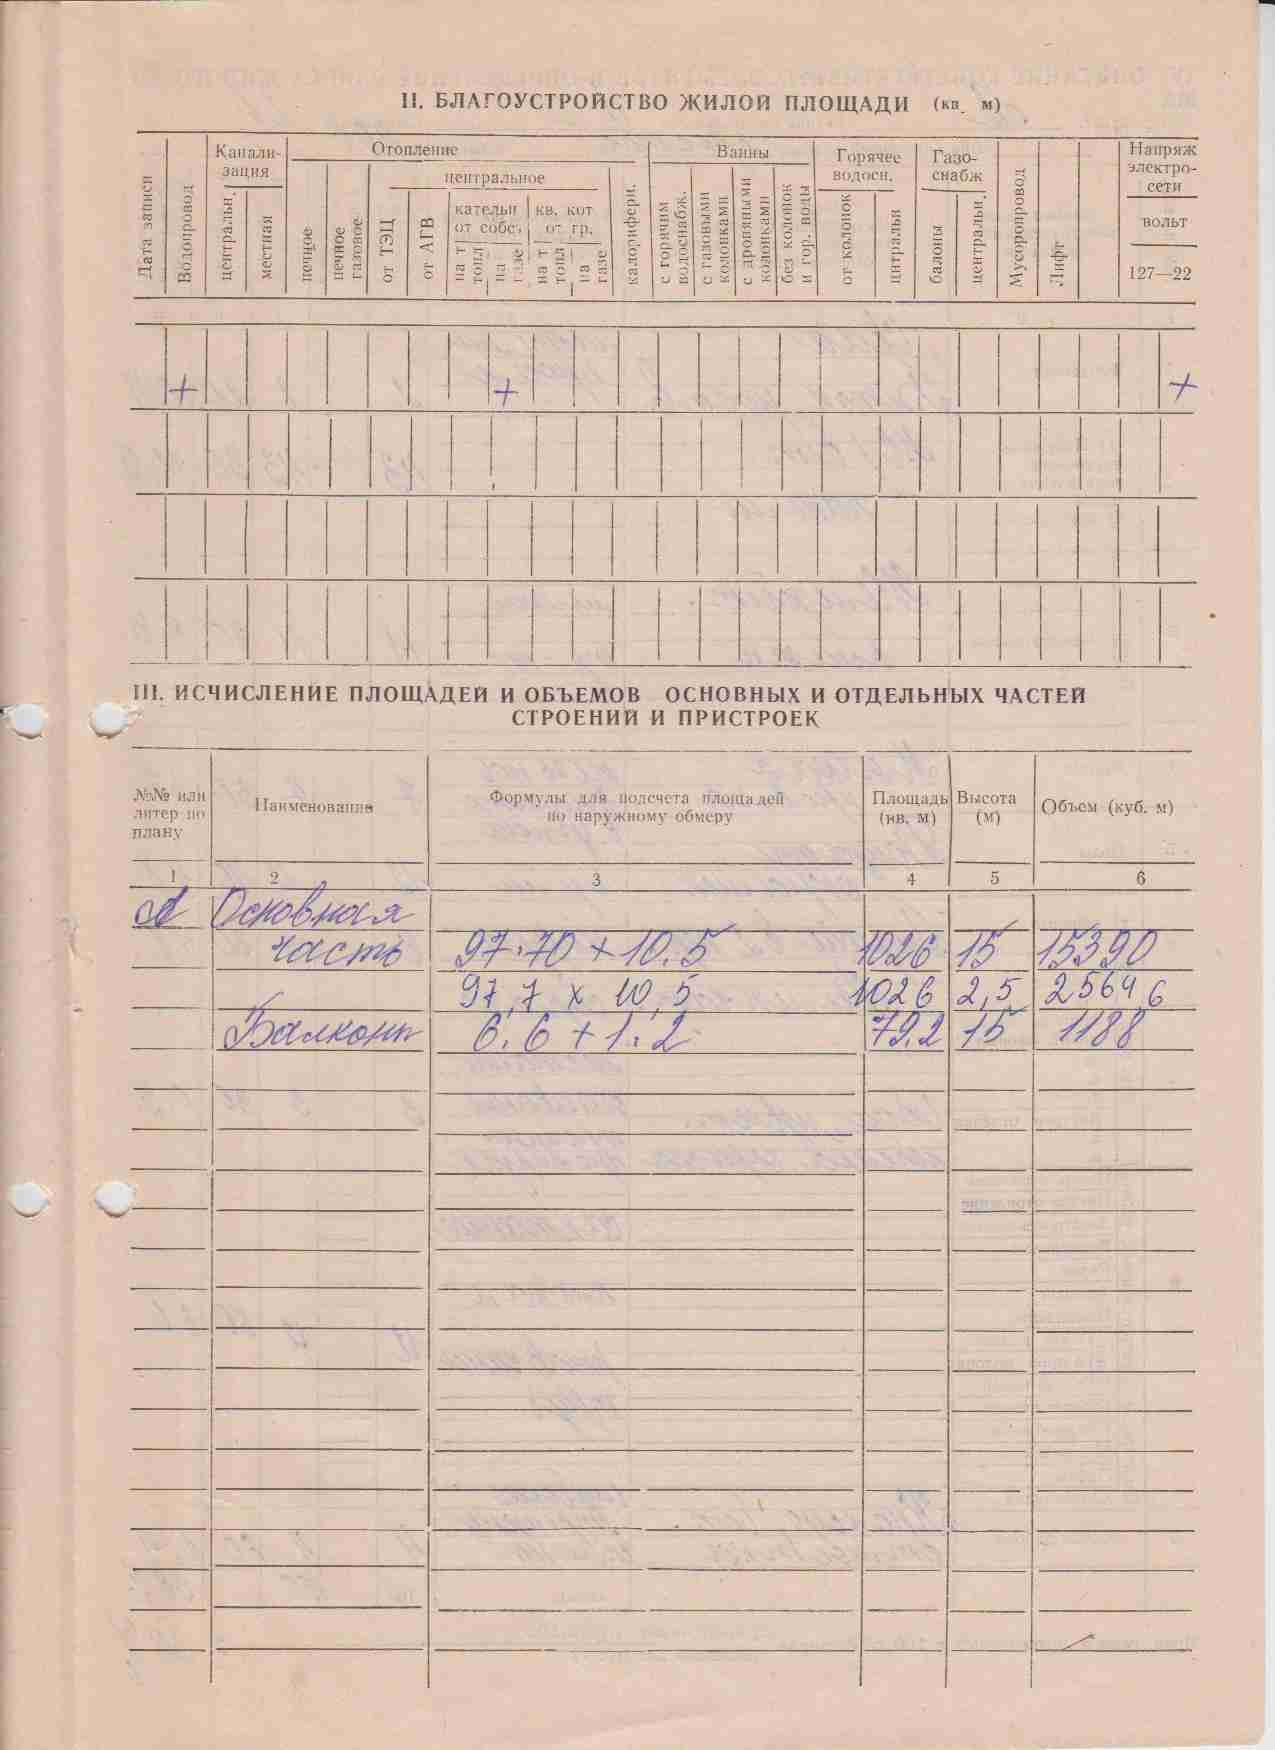 II. БЛАГОУСТРОЙСТВО ЖИЛОЙ ПЛОЩАДИ (кв. м)
Дата записи
Водопровод
Канали-
зация
центральн.
местная
Отопление
печное
печное
газовое
центральное
от ТЭЦ
от АГВ
кательн
от собс.
на т
топл
на
газе
кв. кот
от гр.
на т
топл
на
газе
калорифери.
Ванны
с горячим
водоснабж.
с газовыми
колонками
с дровяными
колонками
без колонок
и гор. воды
Горячее
водосн.
от колонок
централь­н
Газо-
снабж
балоны
центральн.
Мусоропровод
Лифт
Напряж
электро-
сети
вольт
127—22
+ + +
III. ИСЧИСЛЕНИЕ ПЛОЩАДЕЙ И ОБЪЕМОВ ОСНОВНЫХ И ОТДЕЛЬНЫХ ЧАСТЕЙ
СТРОЕНИЙ И ПРИСТРОЕК
№№ или
литер по
плану
Наименование
Формулы для подсчета площадей
по наружному обмеру
Площадь
(кв. м)
Высота
(м)
Объем (куб. м)
1 2 3 4 5 6
А Основная
часть 97.70 × 10.5 1026 15 15390
97,7 х 10,5 1026 2,5 2564,6
Балконы 6.6 + 1.2 79.2 15 1188